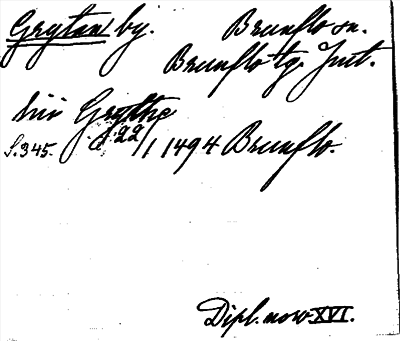 Grytan by. Brunflo sn.
Brunflo tg. Jmt.
hii Grythe
S. 345. d. 22/1 1494 Brunflo.
Dipl. norv. XVI.